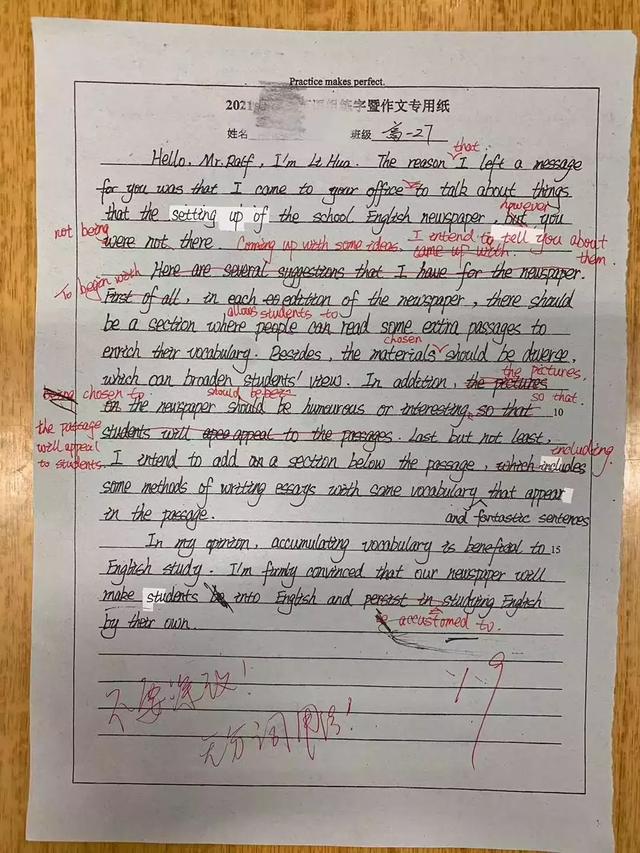 Practice makes perfect.
2021 练字暨作文专用纸
姓名 班级 高一27
that
Hello, Mr. Ratf, I'm Li Hua. The reason I left a message
for you was that I came to your office to talk about things
however
that the setting up of the school English newspaper, but you
not being
were not there. Coming up with some ideas, I intend to tell you about
came up with them.
Here are several suggestions that I have for the newspaper.
To began with
First of all, in each edition of the newspaper, there should
allows students to
be a section where people can read some extra passages to
chosen
enrich their vocabulary. Besides, the materials should be diverse,
the pictures.
which can broaden students' view. In addition, the pictures
being chosen to should be so that
in the newspaper should be humourous or interesting, so that 10
the passage
will appeal
to students.
students will appeal to the passages. Last but not least,
including
I intend to add a section below the passage, which includes
some methods of writing essays with some vocabulary that appear
in the passage. and fantastic sentences
In my opinion, accumulating vocabulary is beneficial to 15
English study. I'm firmly convinced that our newspaper will
make students into English and persist in studying English
by their own. be accustomed to
不要涂改!
19